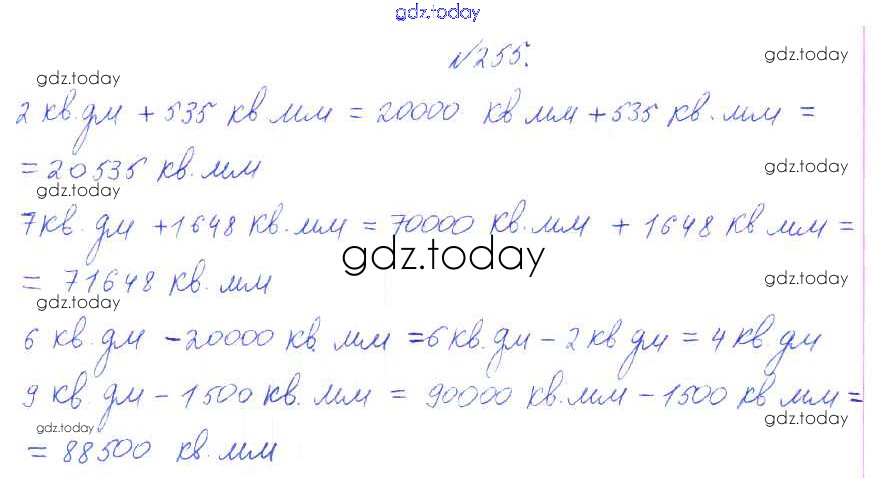 gdz.today
№255.
gdz.today
gdz.today
2 кв.дм + 535 кв мм = 20000 кв мм + 535 кв. мм =
= 20535 кв. мм
gdz.today
gdz.today
7кв. дм + 1648 кв. мм = 70000 кв. мм + 1648 кв мм =
gdz.today
= 71648 кв. мм
gdz.today
gdz.today
6 кв. дм - 20000 кв. мм = 6 кв. дм - 2 кв дм = 4 кв. дм
9 кв. дм - 1500 кв. мм = 90000 кв. мм - 1500 кв мм =
gdz.today
gdz.today
= 88500 кв. мм